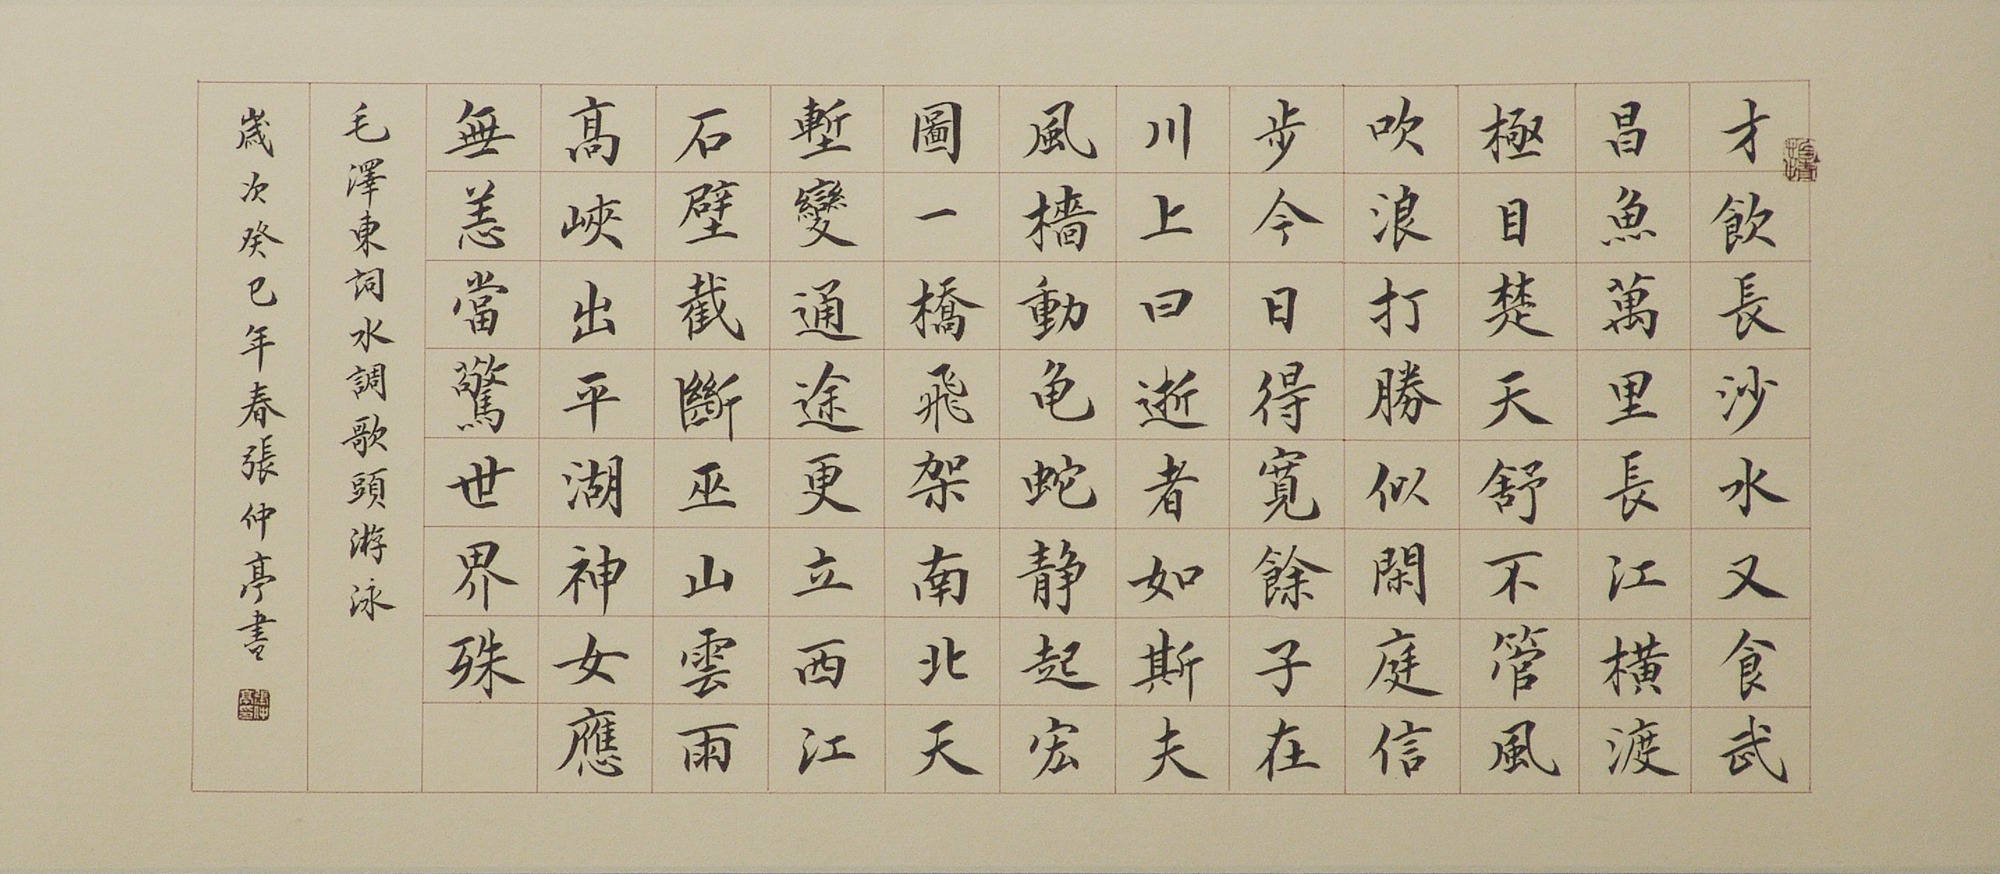 才飲長沙水又食武
昌魚萬里長江橫渡
極目楚天舒不管風
吹浪打勝似閑庭信
步今日得寬餘子在
川上曰逝者如斯夫
風檣動龟蛇静起宏
圖一橋飛架南北天
塹變通途更立西江
石壁截斷巫山雲雨
高峽出平湖神女應
無恙當驚世界殊
毛澤東詞水調歌頭游泳
歲次癸巳年春張仲亭書